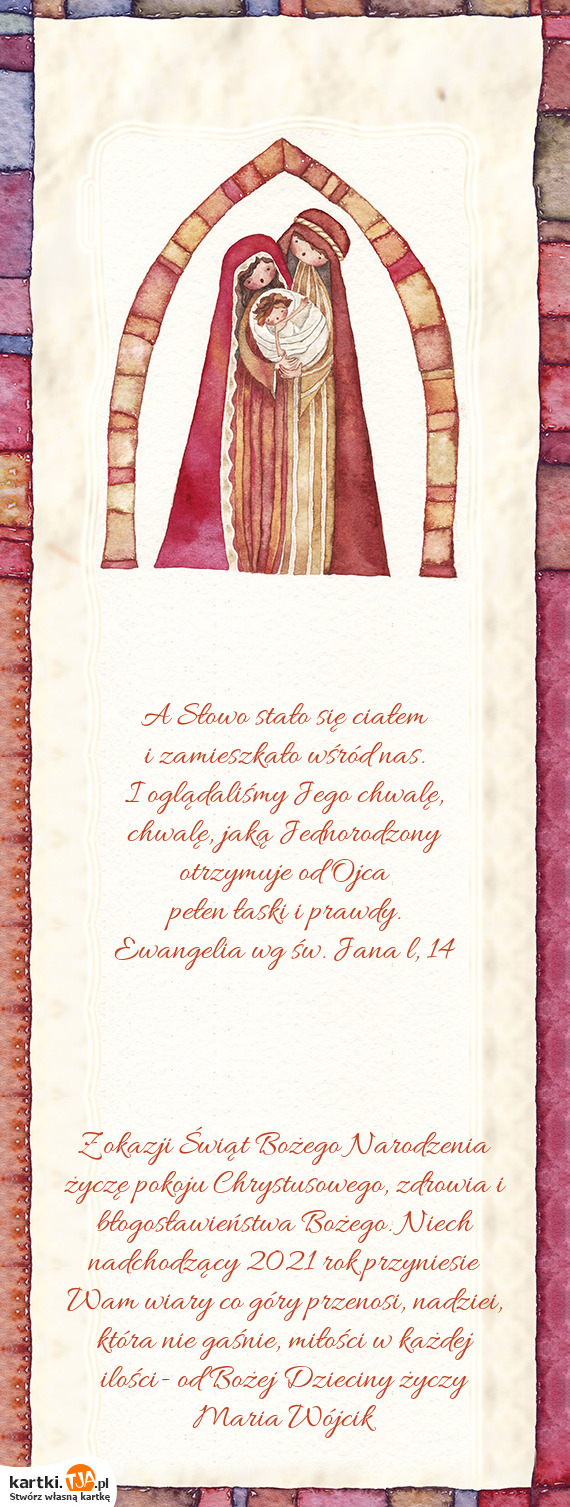 A Słowo stało się ciałem
i zamieszkało wśród nas.
I oglądaliśmy Jego chwałę,
chwałę, jaką Jednorodzony
otrzymuje od Ojca
pełen łaski i prawdy.
Ewangelia wg św. Jana l, 14
Z okazji Świąt Bożego Narodzenia
życzę pokoju Chrystusowego, zdrowia i
błogosławieństwa Bożego. Niech
nadchodzący 2021 rok przyniesie
Wam wiary co góry przenosi, nadziei,
która nie gaśnie, miłości w każdej
ilości - od Bożej Dzieciny życzy
Maria Wójcik
kartki.TJA.pl
Stwórz własną kartkę